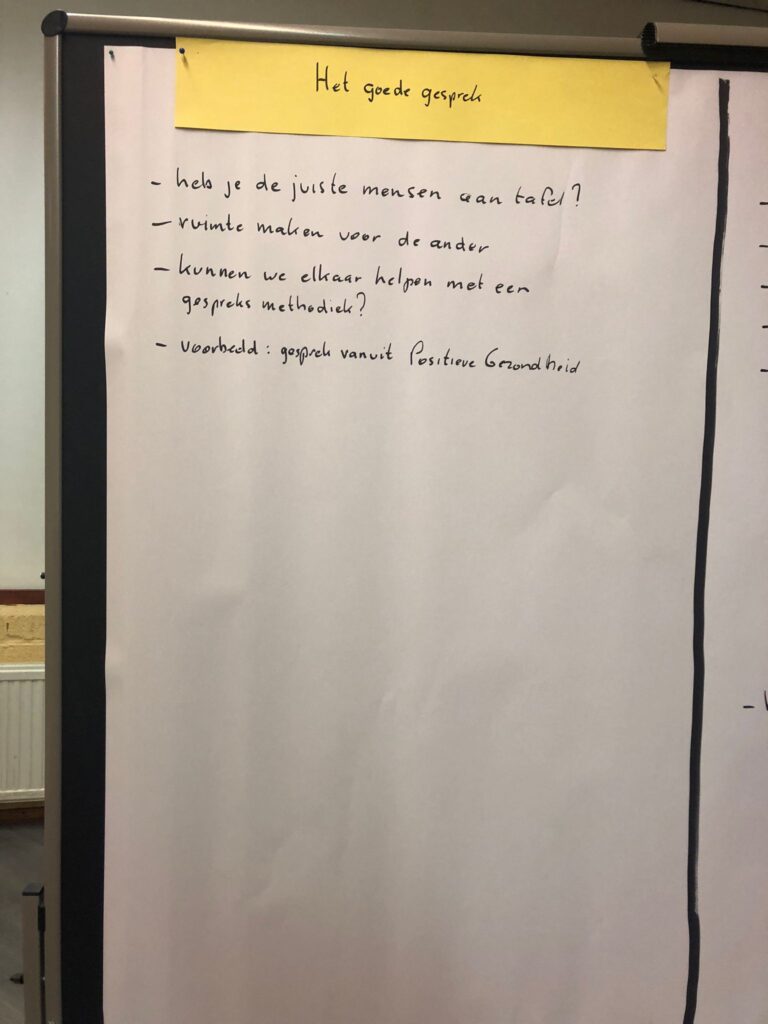 Het goede gesprek
- heb je de juiste mensen aan tafel?
- ruimte maken voor de ander
- kunnen we elkaar helpen met een
gespreks methodiek?
- voorbeeld: gesprek vanuit Positieve Gezondheid